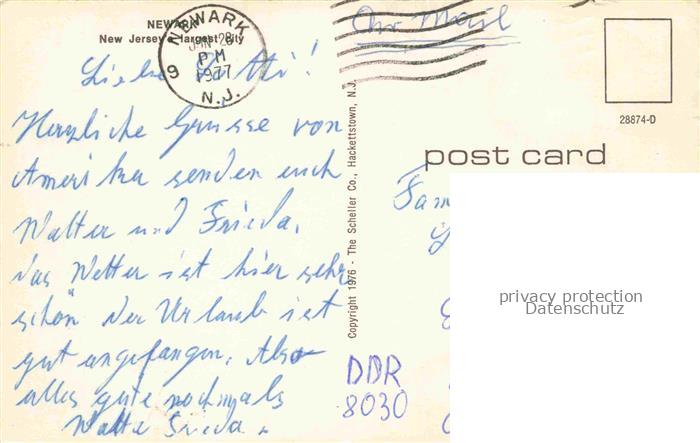 NEWARK
New Jersey's largest city
NEWARK
JAN 28
PM
1977
9
N.J.
Air Mail
28874-D
post card
Copyright 1976 - The Scheller Co., Hackettstown, N.J.
Liebe !
Herzliche Grüsse von
Amerika senden euch
Walter und Frieda,
das Wetter ist hier sehr
schön der Urlaub ist
gut angefangen. Also
alles gute nochmals
Walter Frieda.
Fam
DDR
8030
privacy protection
Datenschutz